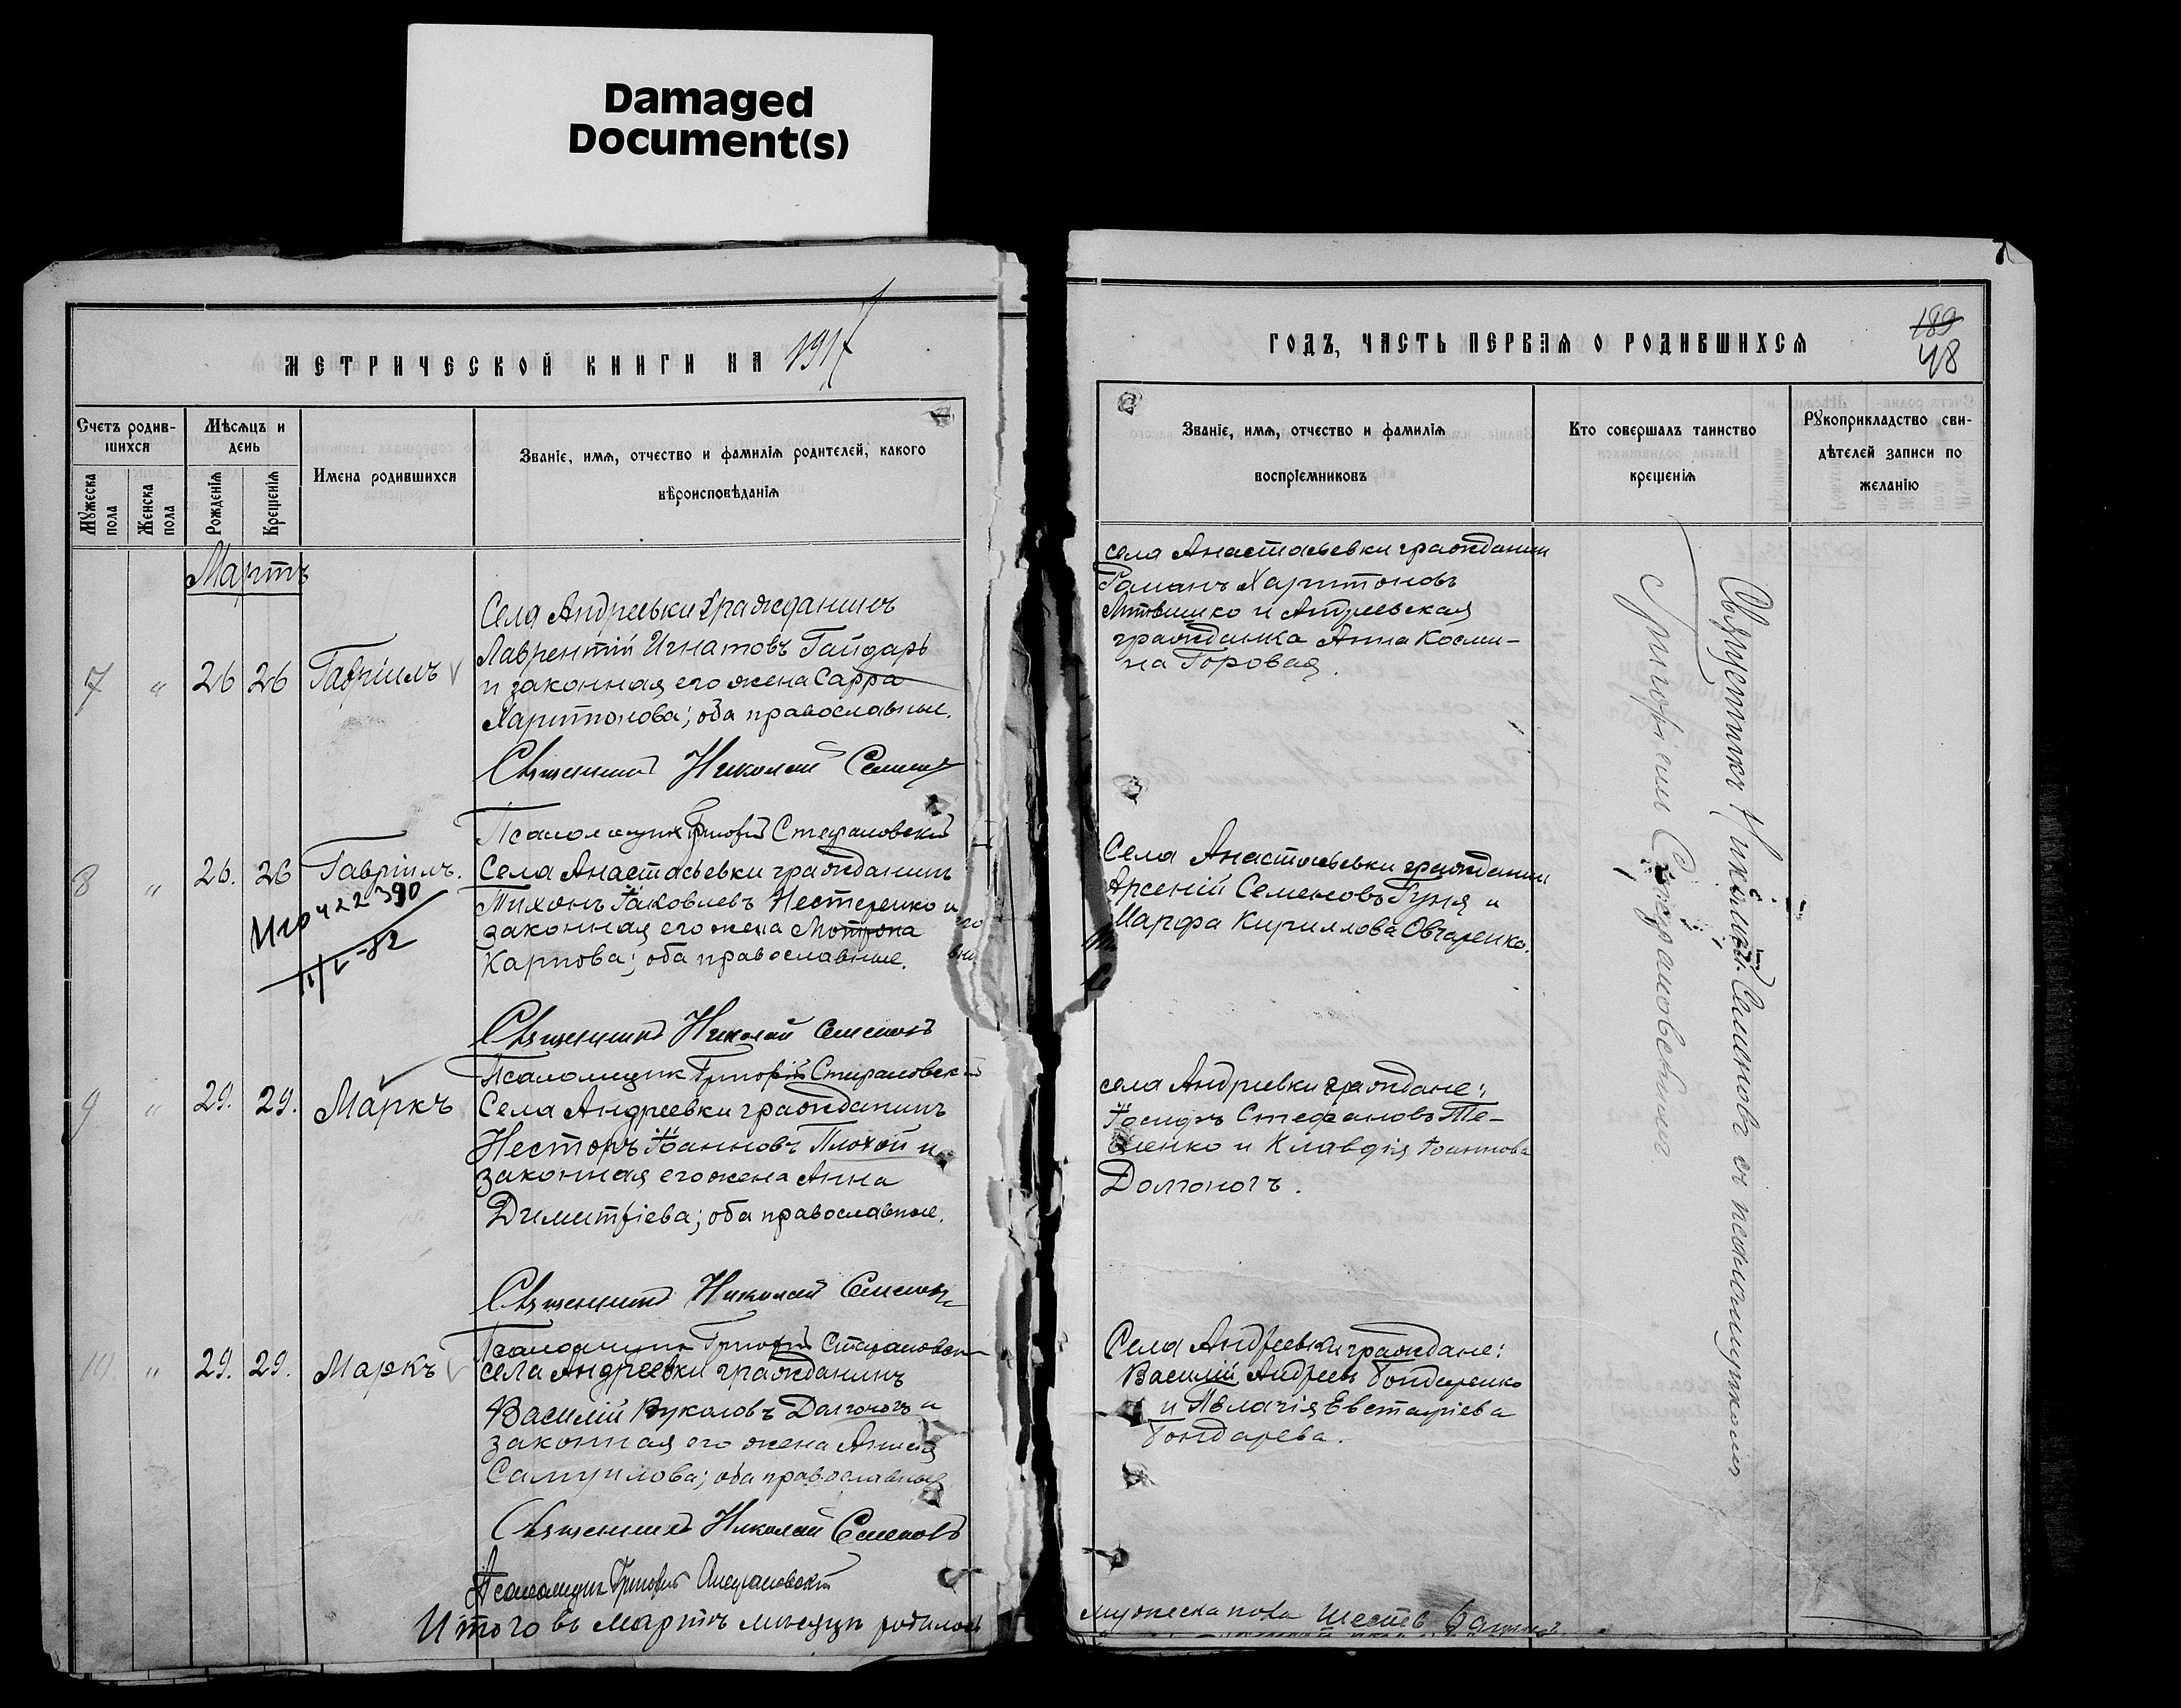 Damaged
Document(s)
МЕТРИЧЕСКОЙ КНИГИ НА 1917
Счетъ родив-
шихся
Мѣсяцъ и
день
Имена родившихся
Званіе, имя, отчество и фамилія родителей, какого
вѣроисповѣданія
Мужеска
пола
Женска
пола
Рожденія
Крещенія
Мартъ
7 " 26 26 Гавріилъ
Села Андреевки гражданинъ
Лаврентій Игнатовъ Гайдарь
и законная его жена Сарра
Харитонова; оба православные.
Священникъ Николай Семеновъ
Псаломщикъ Григорій Стефановскій
8 " 26. 26 Гавріилъ.
422390
Села Анастасьевки гражданинъ
Тихонъ Іаковлевъ Нестеренко и
законная его жена Мотрона
Карпова; оба православные.
Священникъ Николай Семеновъ
Псаломщик Григорій Стефановскій
9 " 29. 29. Маркъ
Села Андреевки гражданинъ
Несторъ Іоанновъ Плохой и
законная его жена Анна
Димитріева; оба православные.
Священникъ Николай Семеновъ
Псаломщикъ Григорій Стефановскій
10. " 29. 29. Маркъ
села Андреевки гражданинъ
Василій Вуколовъ Долгоногъ и
законная его жена
Самуилова; оба православные
Священникъ Николай Семеновъ
Псаломщик Григорій Стефановскій
Итого въ мартѣ мѣсяцѣ родилось
ГОДЪ, ЧАСТЬ ПЕРВАЯ О РОДИВШИХСЯ
189
48
Званіе, имя, отчество и фамилія
воспріемниковъ
Кто совершалъ таинство
крещенія
Рукоприкладство сви-
дѣтелей записи по
желанію
села Анастасьевки гражданин
Романъ Харитоновъ
Литвишко и Андреевская
гражданка Анна Косми-
на Горовая.
Села Анастасьевки гражданин
Арсеній Семеновъ Гуня и
Марфа Кириллова Овчаренко.
села Андреевки граждане:
Іосифъ Стефановъ Те-
ненко и Клавдія Іоаннова
Долгоногъ.
Села Андреевки граждане:
Василій Андреевъ Бондаренко
и Евстафіева
Бондарева.
Священникъ Николай Семеновъ съ псаломщикомъ
Григоріем Стефановскимъ.
мужеска пола шесть